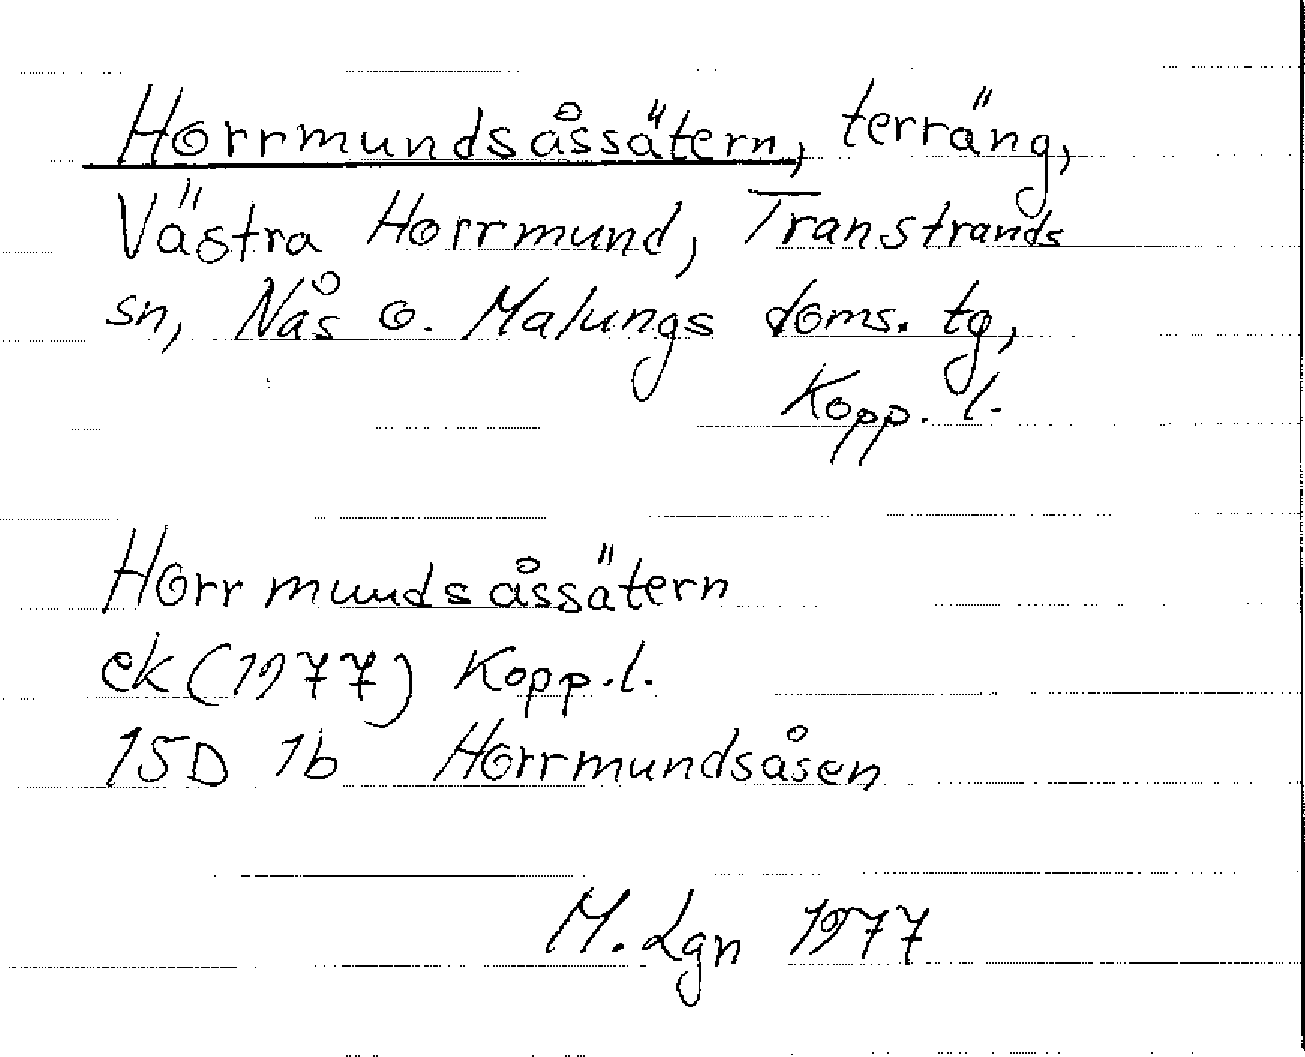 Horrmundsåssätern, terräng,
Västra Horrmund, Transtrands
sn, Nås o. Malungs doms. tg,
Kopp. l.
Horrmundsåssätern
ek (1977) Kopp.l.
15D 1b Horrmundsåsen
M. Lgn 1977